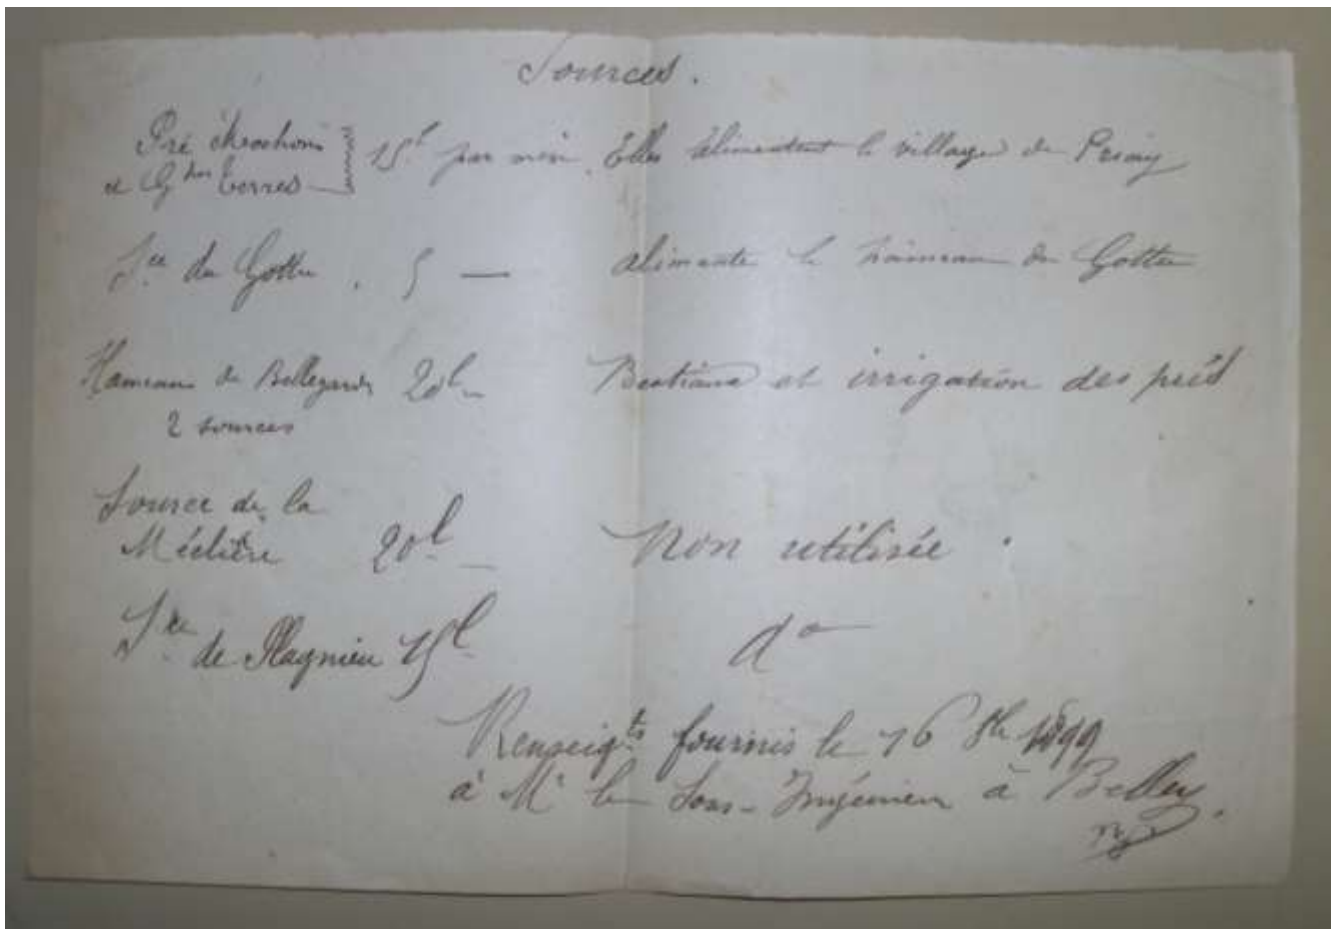 Sources.
Pré
et Gdes terres
15l par min. Elles alimentent le village de Prémy
Sce du Gottu . 5 — alimente le hameau du Gottu
Hameau de Bellegarde 20l — Bestiaux et irrigation des prés
2 sources
Source de la
Méclière 20l — Non utilisée .
Sce de Plagnieu 15l do
Renseigts fournis le 16 1899
à Mr le Sous-Ingénieur à Belley.